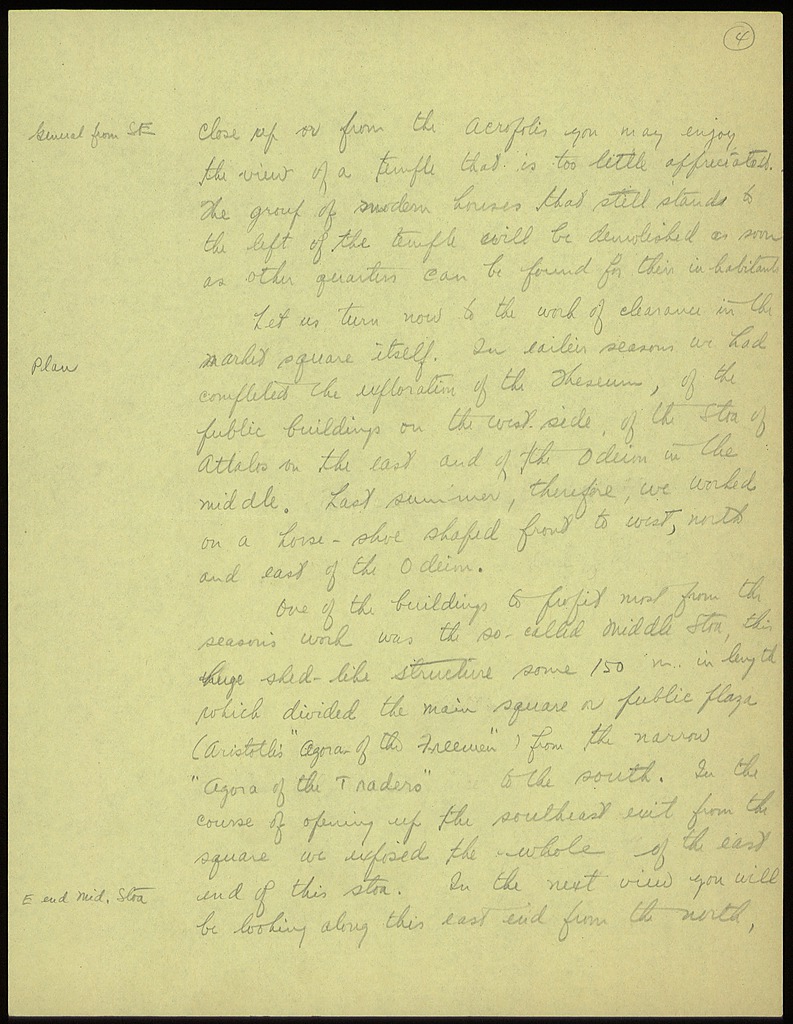 4
General from SE
close up or from the Acropolis you may enjoy
the view of a temple that is too little appreciated.
The group of modern houses that still stands to
the left of the temple will be demolished as soon
as other quarters can be found for their inhabitants
Let us turn now to the work of clearance in the
Plan
market square itself. In earlier seasons we had
completed the exploration of the Theseum, of the
public buildings on the west side, of the Stoa of
Attalos on the east and of the Odeion in the
middle. Last summer, therefore, we worked
on a horse-shoe shaped front to west, north
and east of the Odeion.
One of the buildings to profit most from the
season's work was the so-called Middle Stoa, this
huge shed-like structure some 150 m. in length
which divided the main square or public plaza
(Aristotle's "Agora of the Freemen") from the narrow
"Agora of the Traders" to the south. In the
course of opening up the southeast exit from the
square we exposed the whole of the east
E end Mid. Stoa
end of this stoa. In the next view you will
be looking along this east end from the north,